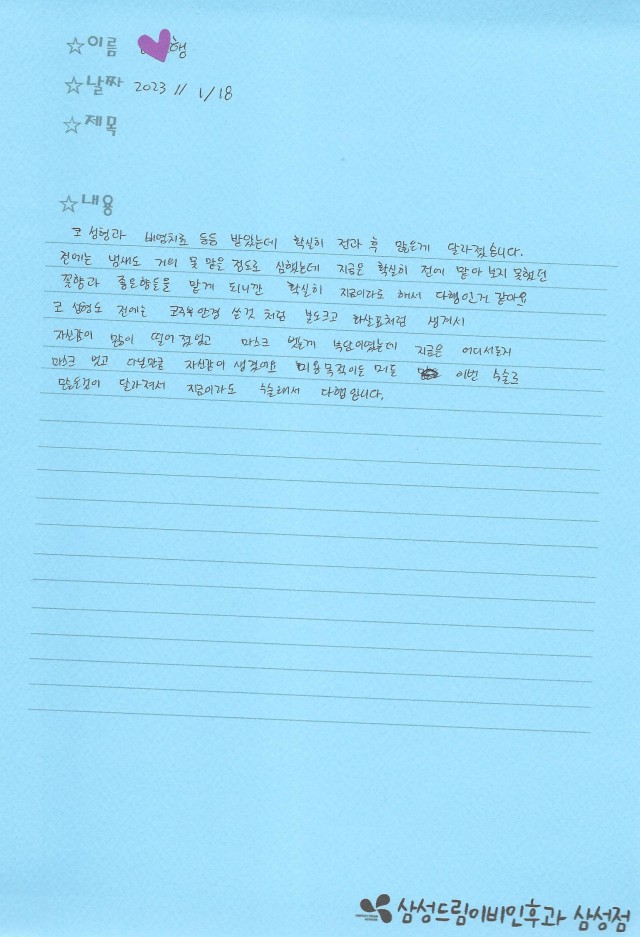 ☆이름 행
☆날짜 2023 // 1/18
☆제목
☆내용
코 성형과 비염치료 등등 받았는데 확실히 전과 후 많은게 달라졌습니다.
전에는 냄새도 거의 못 맡을 정도로 심했는데 지금은 확실히 전에 맡아 보지 못했던
꽃향과 좋은향들을 맡게 되니깐 확실히 지금이라도 해서 다행인거 같아요
코 성형도 전에는 코주부 안경 쓴것 처럼 코고 화살표처럼 생겨서
자신감이 많이 떨어 졌었고 마스크 벗는게 부담이었는데 지금은 어디서든지
마스크 벗고 다닐만큼 자신감이 생겼어요 미용목적이든 머든 이번 수술로
많은것이 달라져서 지금이라도 수술해서 다행입니다.
삼성드림이비인후과 삼성점